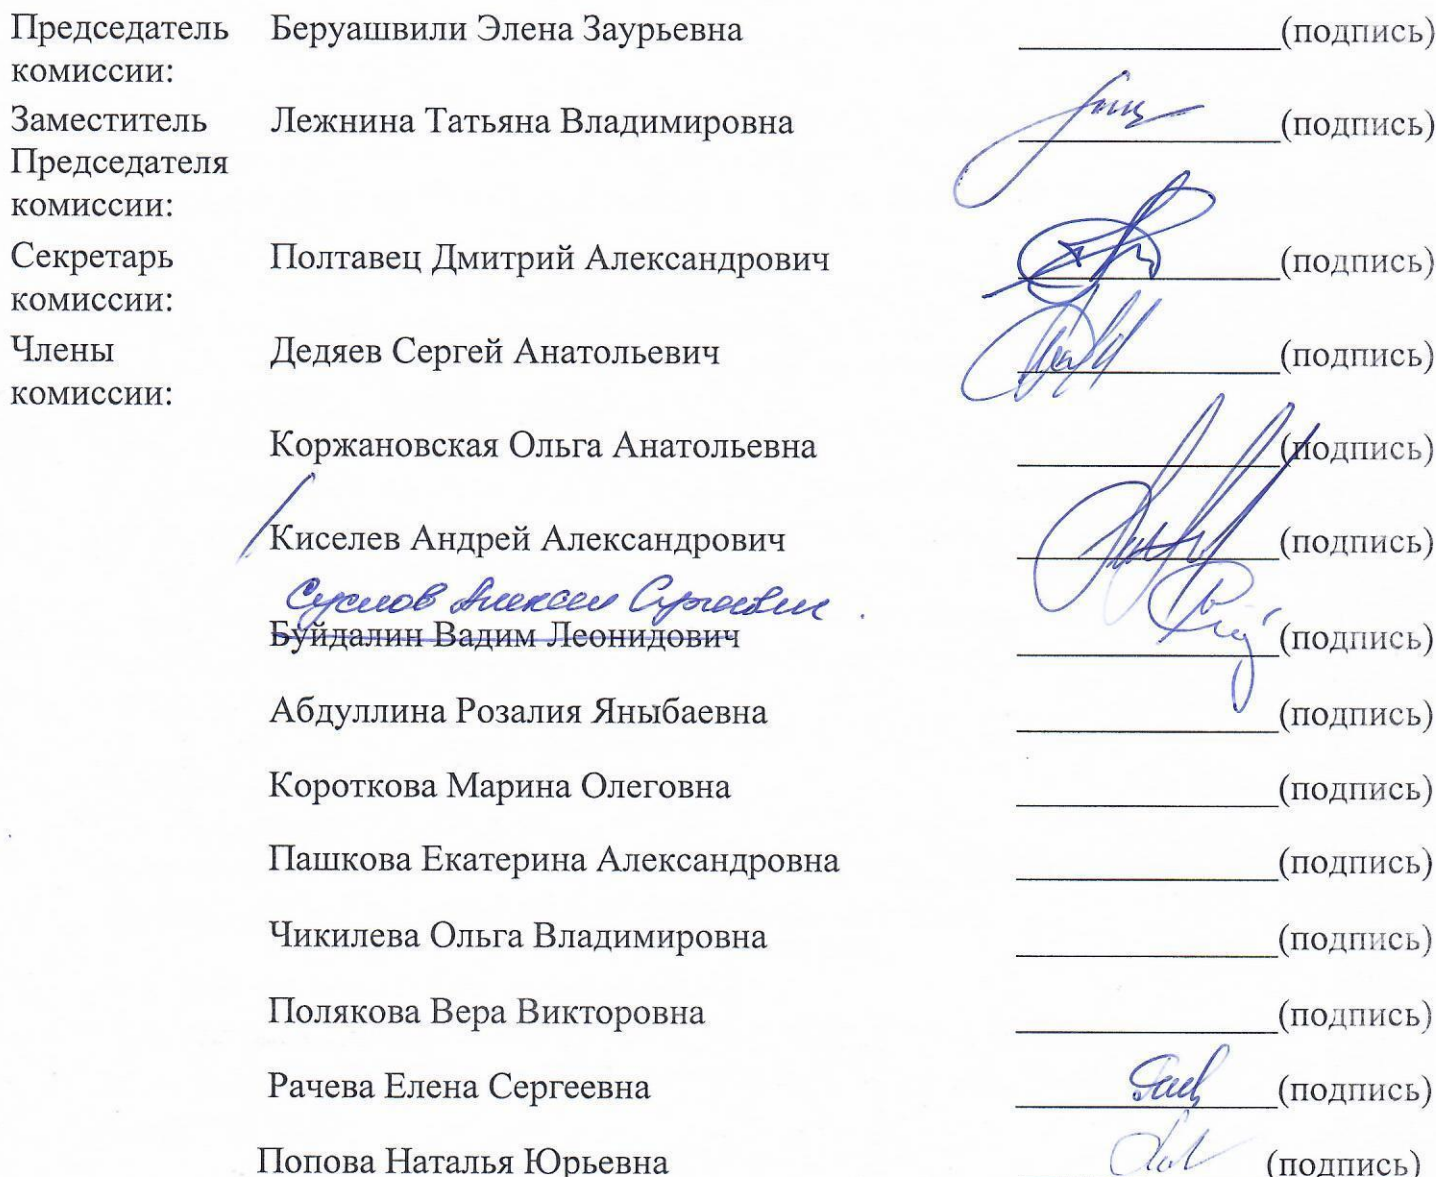 Председатель Беруашвили Элена Заурьевна (подпись)
комиссии:
Заместитель Лежнина Татьяна Владимировна (подпись)
Председателя
комиссии:
Секретарь Полтавец Дмитрий Александрович (подпись)
комиссии:
Члены Дедяев Сергей Анатольевич (подпись)
комиссии:
Коржановская Ольга Анатольевна (подпись)
Киселев Андрей Александрович (подпись)
Суслов Алексей Сергеевич
Буйдалин Вадим Леонидович (подпись)
Абдуллина Розалия Яныбаевна (подпись)
Короткова Марина Олеговна (подпись)
Пашкова Екатерина Александровна (подпись)
Чикилева Ольга Владимировна (подпись)
Полякова Вера Викторовна (подпись)
Рачева Елена Сергеевна (подпись)
Попова Наталья Юрьевна (подпись)